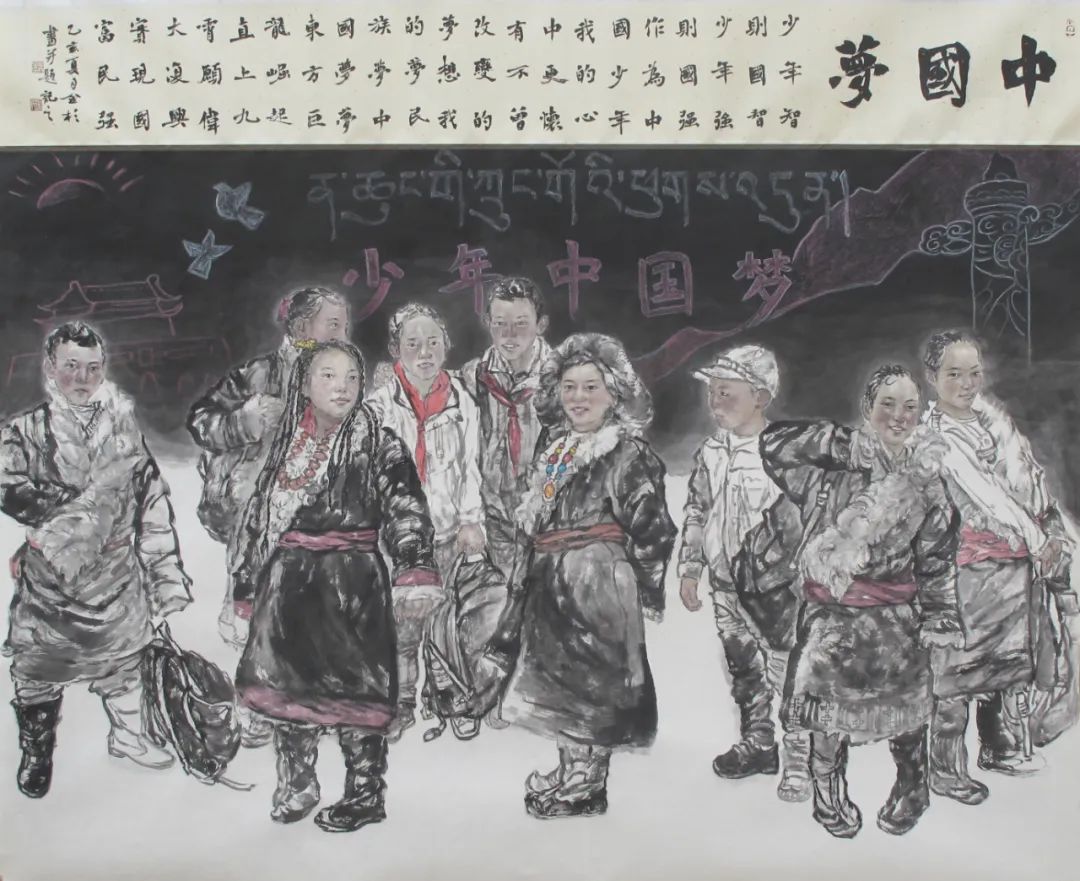 中國夢
少年智
則國智
少年強
則國强
作為中
國少年
我的心
中更懷
有不曾
改變的
夢想我
的夢民
族夢中
國夢夢
東方巨
龍崛起
直上九
霄願偉
大復興
實現國
富民强
亥夏月金杉
畫并題記之
ན་ཆུང་གི་ཀྲུང་གོའི་ཕུགས་འདུན།
少年中国梦